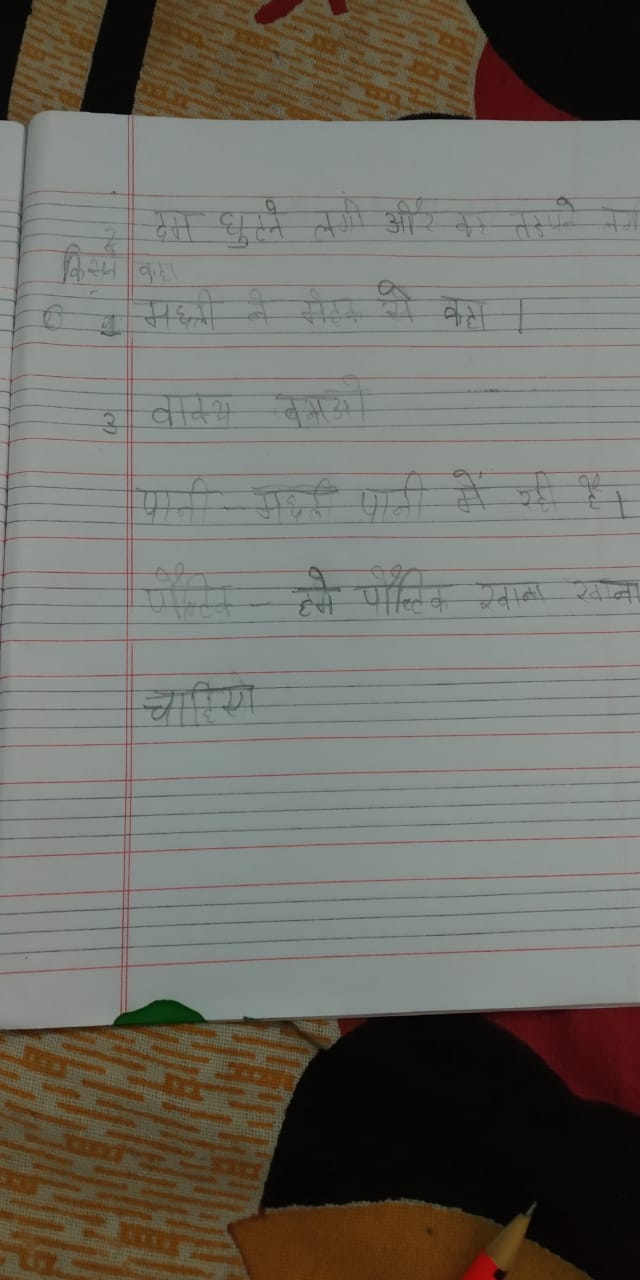 दम घुटने लगी और वह तडपने लगी
2
किसने कहा
1 मछली ने मेंढक से कहा ।
3 वाक्य बनाओ
पानी - मछली पानी में रही है ।
पौष्टिक - हमे पौष्टिक खाना खाना
चाहिए